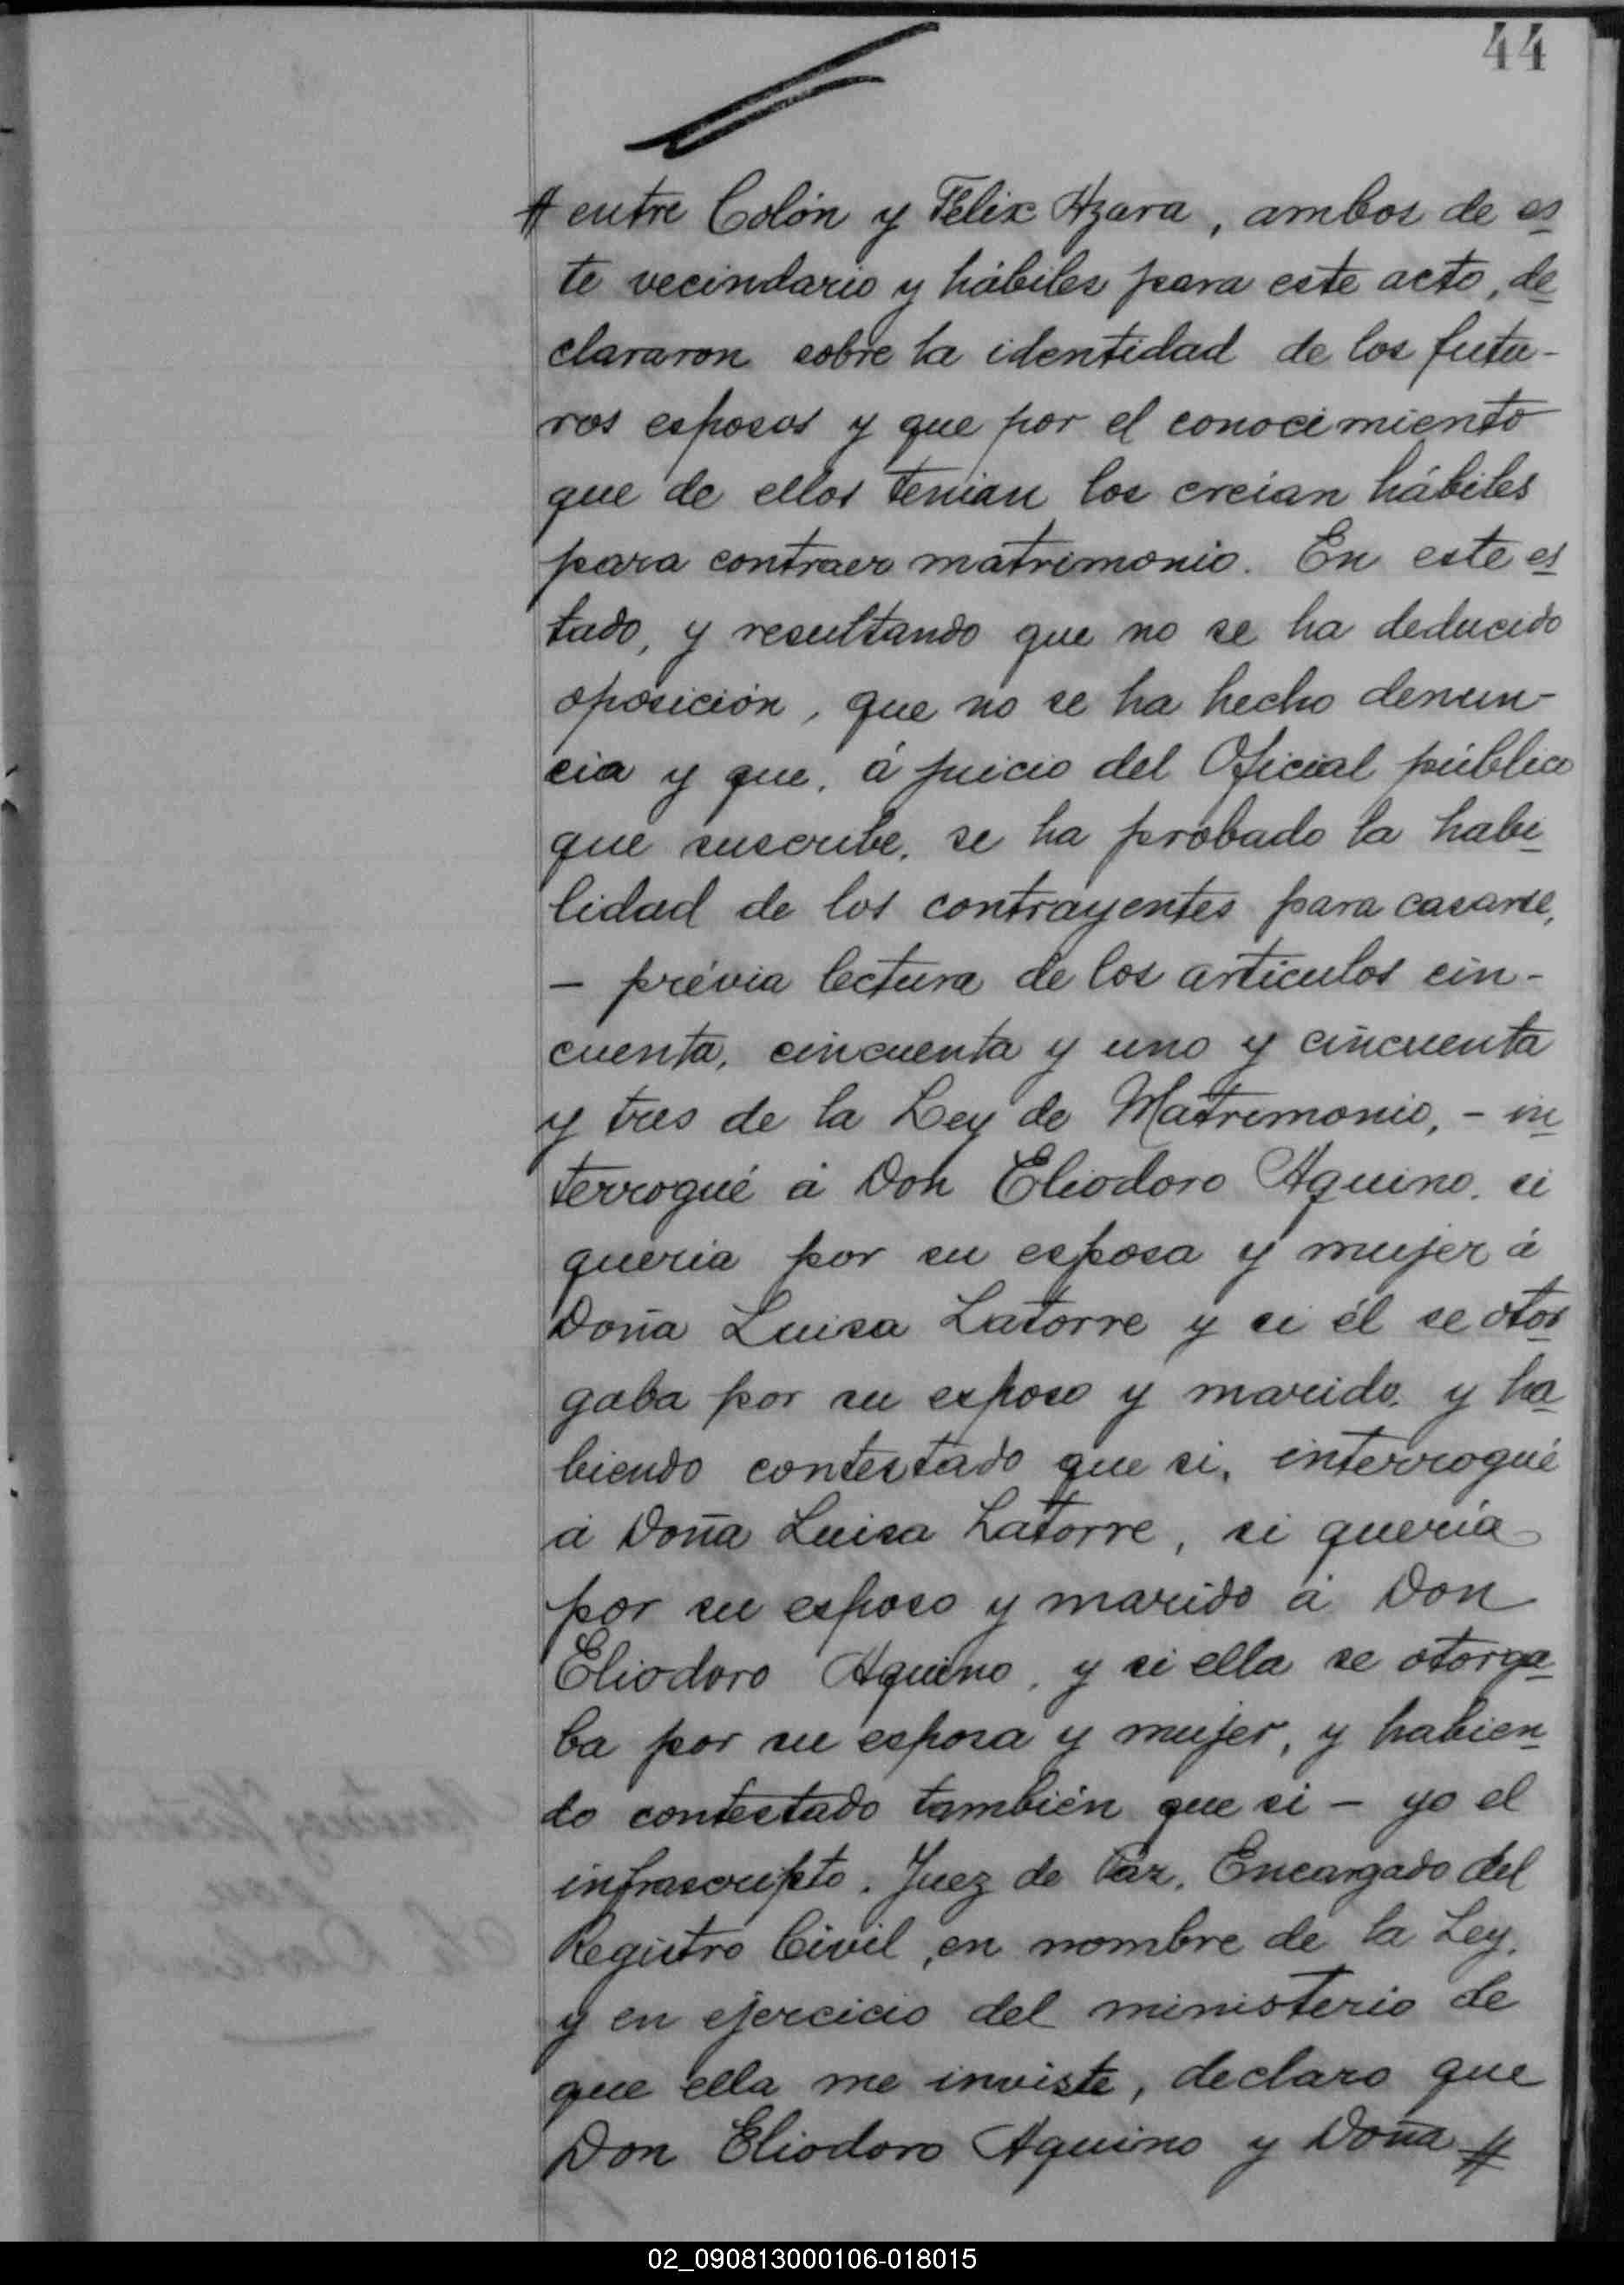 44
# entre Colón y Félix Azara, ambos de es
te vecindario y hábiles para este acto, de
clararon sobre la identidad de los futu-
ros esposos y que por el conocimiento
que de ellos tenian los creian hábiles
para contraer matrimonio. En este es
tado, y resultando que no se ha deducido
oposición, que no se ha hecho denun-
cia y que, á juicio del Oficial público
que suscribe, se ha probado la habi
lidad de los contrayentes para casarse,
– prévia lectura de los artículos cin-
cuenta, cincuenta y uno y cincuenta
y tres de la Ley de Matrimonio, – in
terrogué á Don Eliodoro Aquino, si
queria por su esposa y mujer á
Doña Luisa Latorre y si él se otor
gaba por su esposo y marido, y ha
biendo contestado que si, interrogué
á Doña Luisa Latorre, si quería
por su esposo y marido á Don
Eliodoro Aquino, y si ella se otorga
ba por su esposa y mujer, y habien
do contestado también que si – yo el
infrascripto, Juez de Paz, Encargado del
Registro Civil, en nombre de la Ley,
y en ejercicio del ministerio de
que ella me inviste, declaro que
Don Eliodoro Aquino y Doña #
02_090813000106-018015